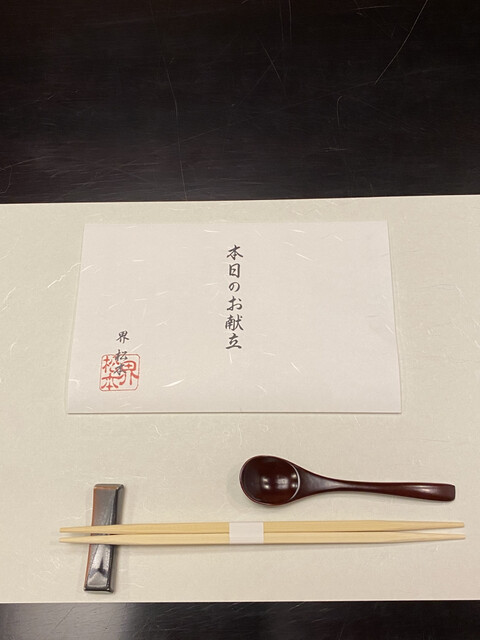 本日のお献立
界 松本
界
松本